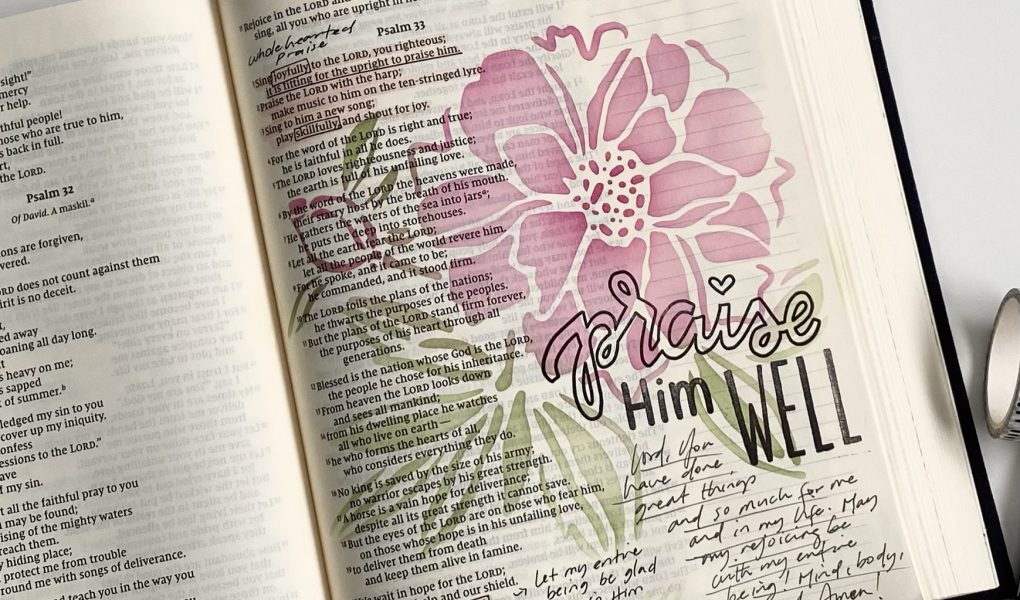 sight!"
mercy
r help.
thful people!
hose who are true to him,
s back in full.
rt,
the LORD.
Psalm 32
Of David. A maskil.a
ons are forgiven,
vered.
ORD does not count against them
irit is no deceit.
t,
ed away
oaning all day long.
t
s heavy on me;
s sapped
t of summer.b
ledged my sin to you
cover up my iniquity.
onfess
essions to the LORD."
ave
f my sin.
t all the faithful pray to you
may be found;
ising of the mighty waters
reach them.
y hiding place;
protect me from trouble
round me with songs of deliverance.
d teach you in the way you
11 Rejoice in the LORD
sing, all you who are upright in
Psalm 33
whole hearted
praise
1 Sing joyfully to the LORD, you righteous;
it is fitting for the upright to praise him.
2 Praise the LORD with the harp;
make music to him on the ten-stringed lyre.
3 Sing to him a new song;
play skillfully, and shout for joy.
4 For the word of the LORD is right and true;
he is faithful in all he does.
5 The LORD loves righteousness and justice;
the earth is full of his unfailing love.
6 By the word of the LORD the heavens were made,
their starry host by the breath of his mouth.
7 He gathers the waters of the sea into jarsa;
he puts the deep into storehouses.
8 Let all the earth fear the LORD;
let all the people of the world revere him.
9 For he spoke, and it came to be;
he commanded, and it stood firm.
10 The LORD foils the plans of the nations;
he thwarts the purposes of the peoples.
11 But the plans of the LORD stand firm forever,
the purposes of his heart through all
generations.
12 Blessed is the nation whose God is the LORD,
the people he chose for his inheritance.
13 From heaven the LORD looks down
and sees all mankind;
14 from his dwelling place he watches
all who live on earth—
15 he who forms the hearts of all,
who considers everything they do.
16 No king is saved by the size of his army;
no warrior escapes by his great strength.
17 A horse is a vain hope for deliverance;
despite all its great strength it cannot save.
18 But the eyes of the LORD are on those who fear him,
on those whose hope is in his unfailing love,
19 to deliver them from death
and keep them alive in famine.
20 We wait in hope for the LORD;
he is our help and our shield.
praise
Him WELL
Lord, You
have done
great things
and so much for me
and in my life. May
my rejoicing be
with my entire
being! Mind, body,
Amen!
Let my entire
being be glad
in Him